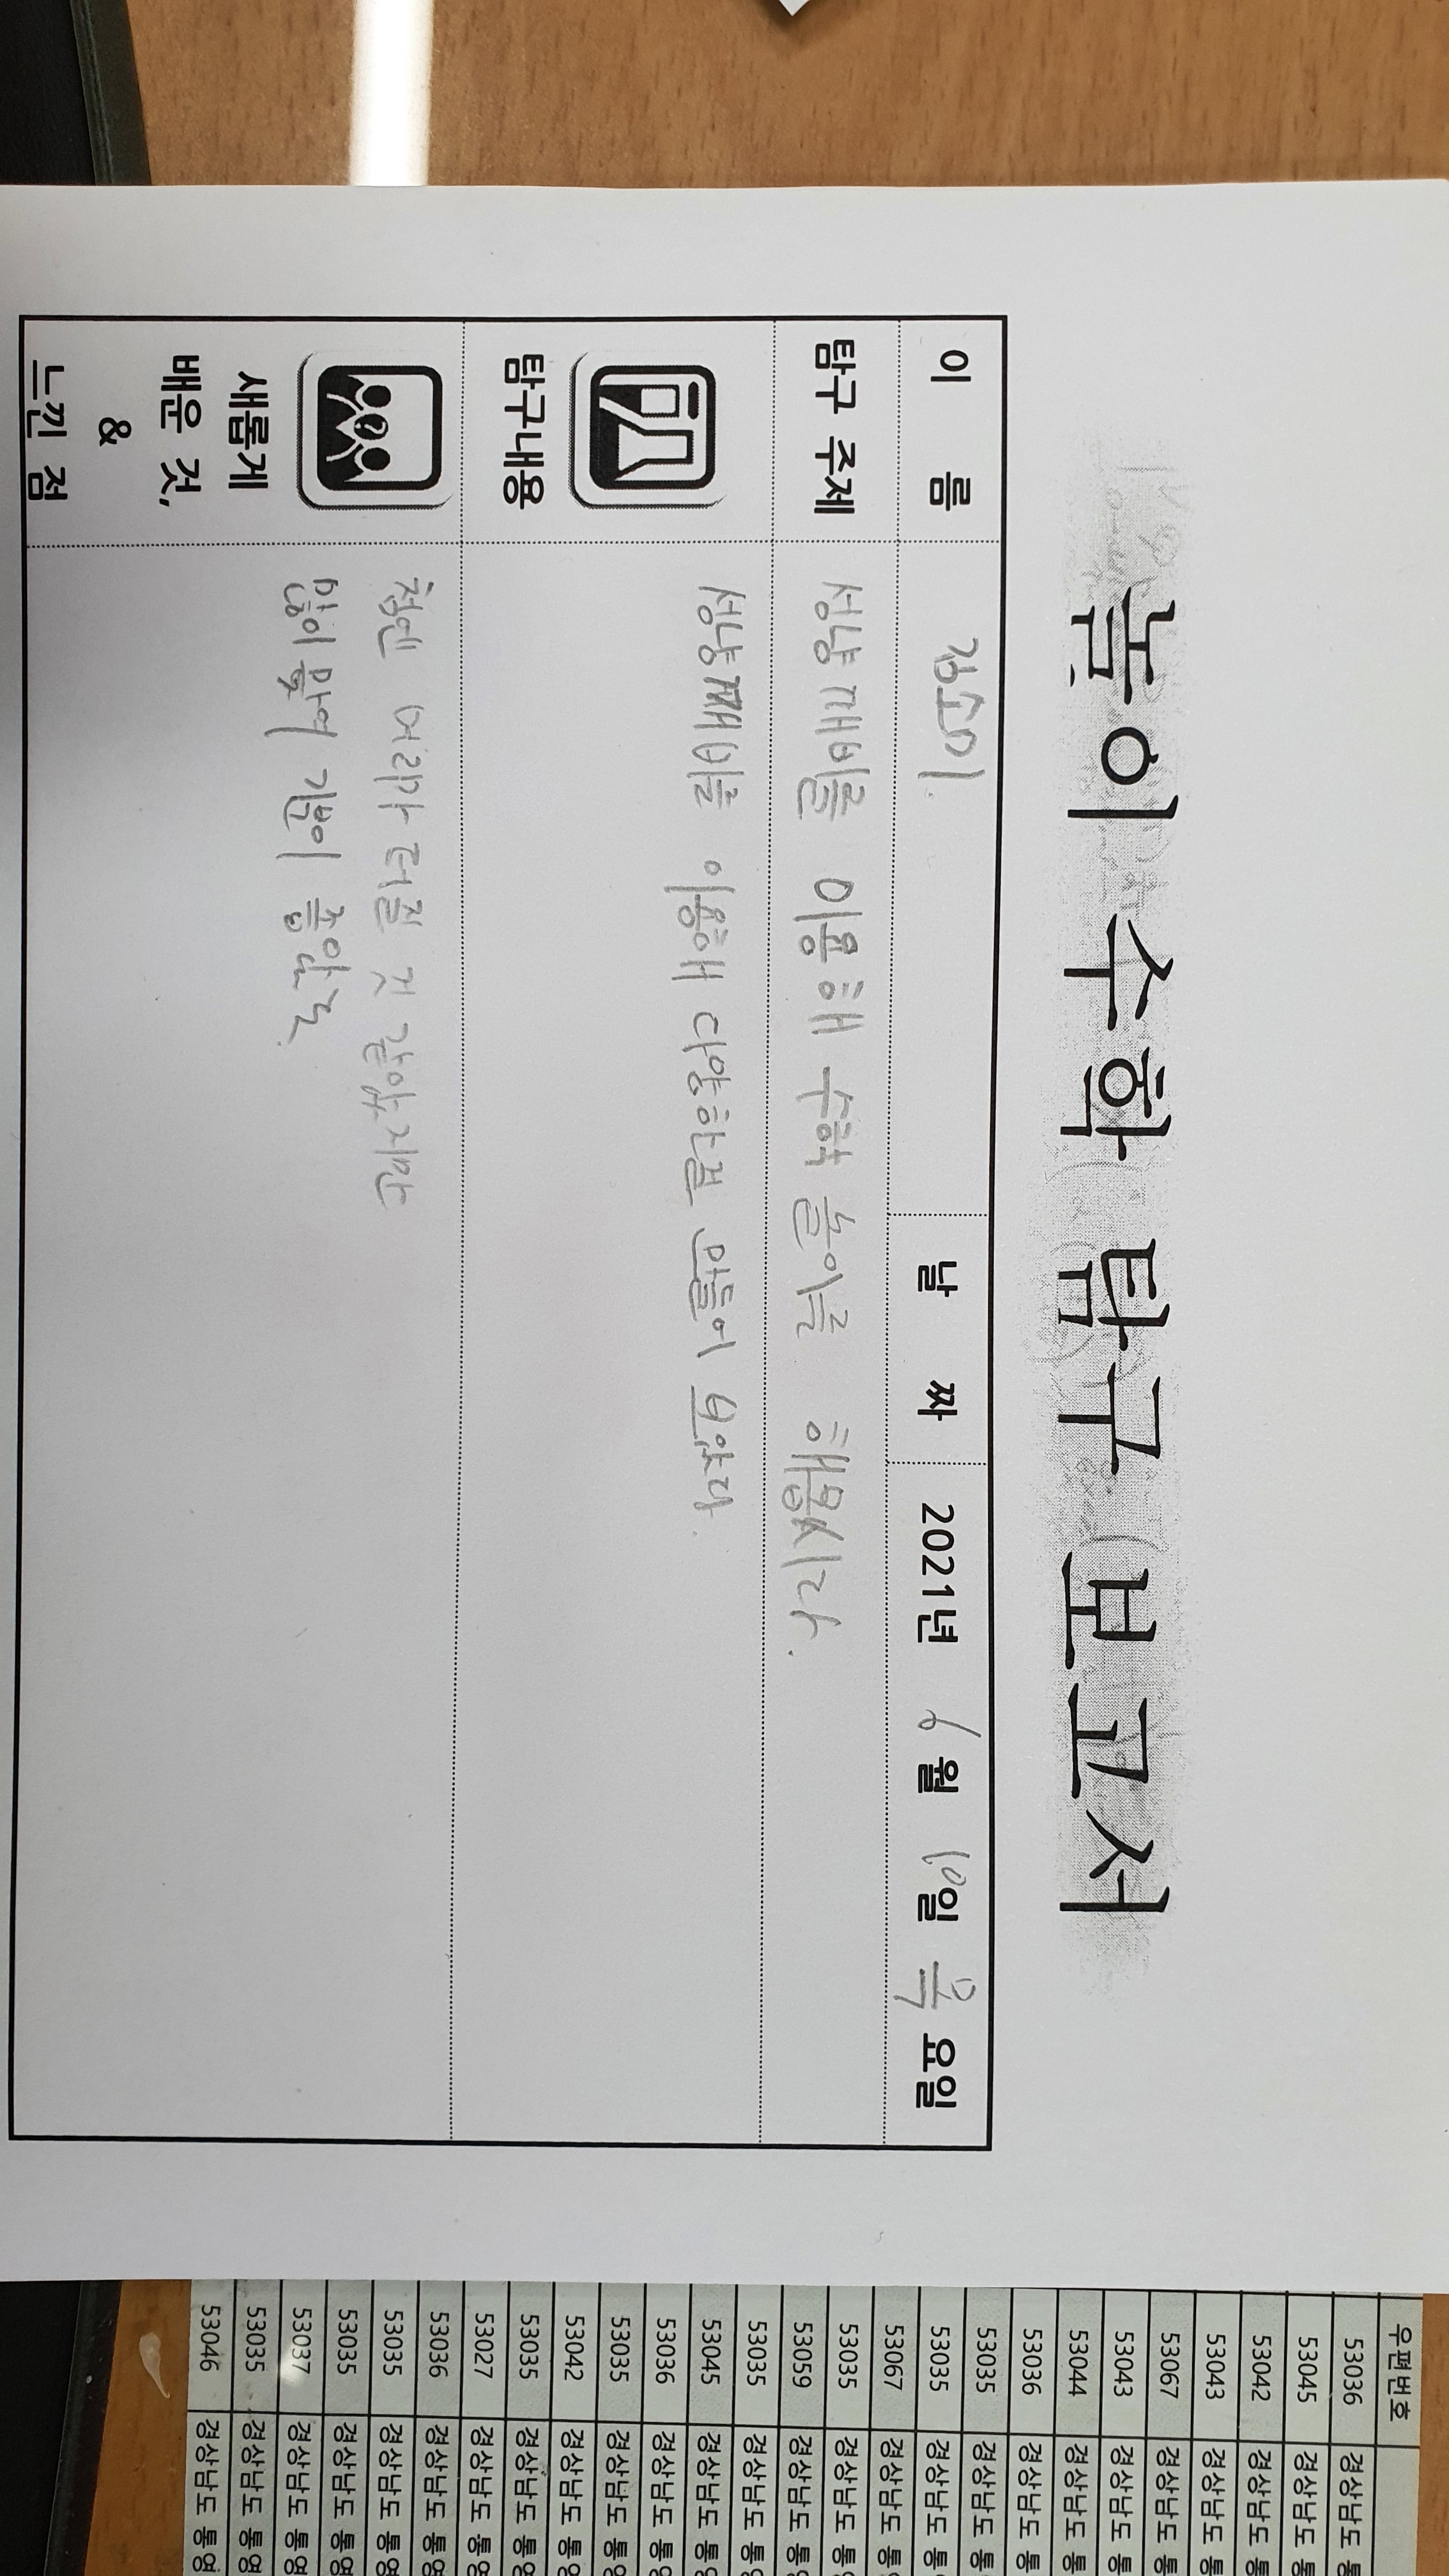 놀이 수학 탐구 보고서
이 름 김소미. 날 짜 2021년 6월 10일 목요일
탐구 주제 성냥개비를 이용해 수학 놀이를 해봅시다.
탐구내용
성냥깨비를 이용해 다양한걸 만들어 보았다.
새롭게
배운 것,
&
느낀 점
첨엔 머리가 터질 것 같았지만
많이 맞혀 기분이 좋았다.
우편번호
53036 경상남도 통
53045 경상남도 통
53042 경상남도 통
53043 경상남도 통
53067 경상남도 통
53043 경상남도 통
53044 경상남도 통
53036 경상남도 통
53035 경상남도 통
53035 경상남도 통
53067 경상남도 통
53035 경상남도 통
53059 경상남도 통
53035 경상남도 통
53045 경상남도 통
53036 경상남도 통
53035 경상남도 통
53042 경상남도 통
53035 경상남도 통
53027 경상남도 통
53036 경상남도 통
53035 경상남도 통
53035 경상남도 통영
53037 경상남도 통영
53035 경상남도 통영
53046 경상남도 통영